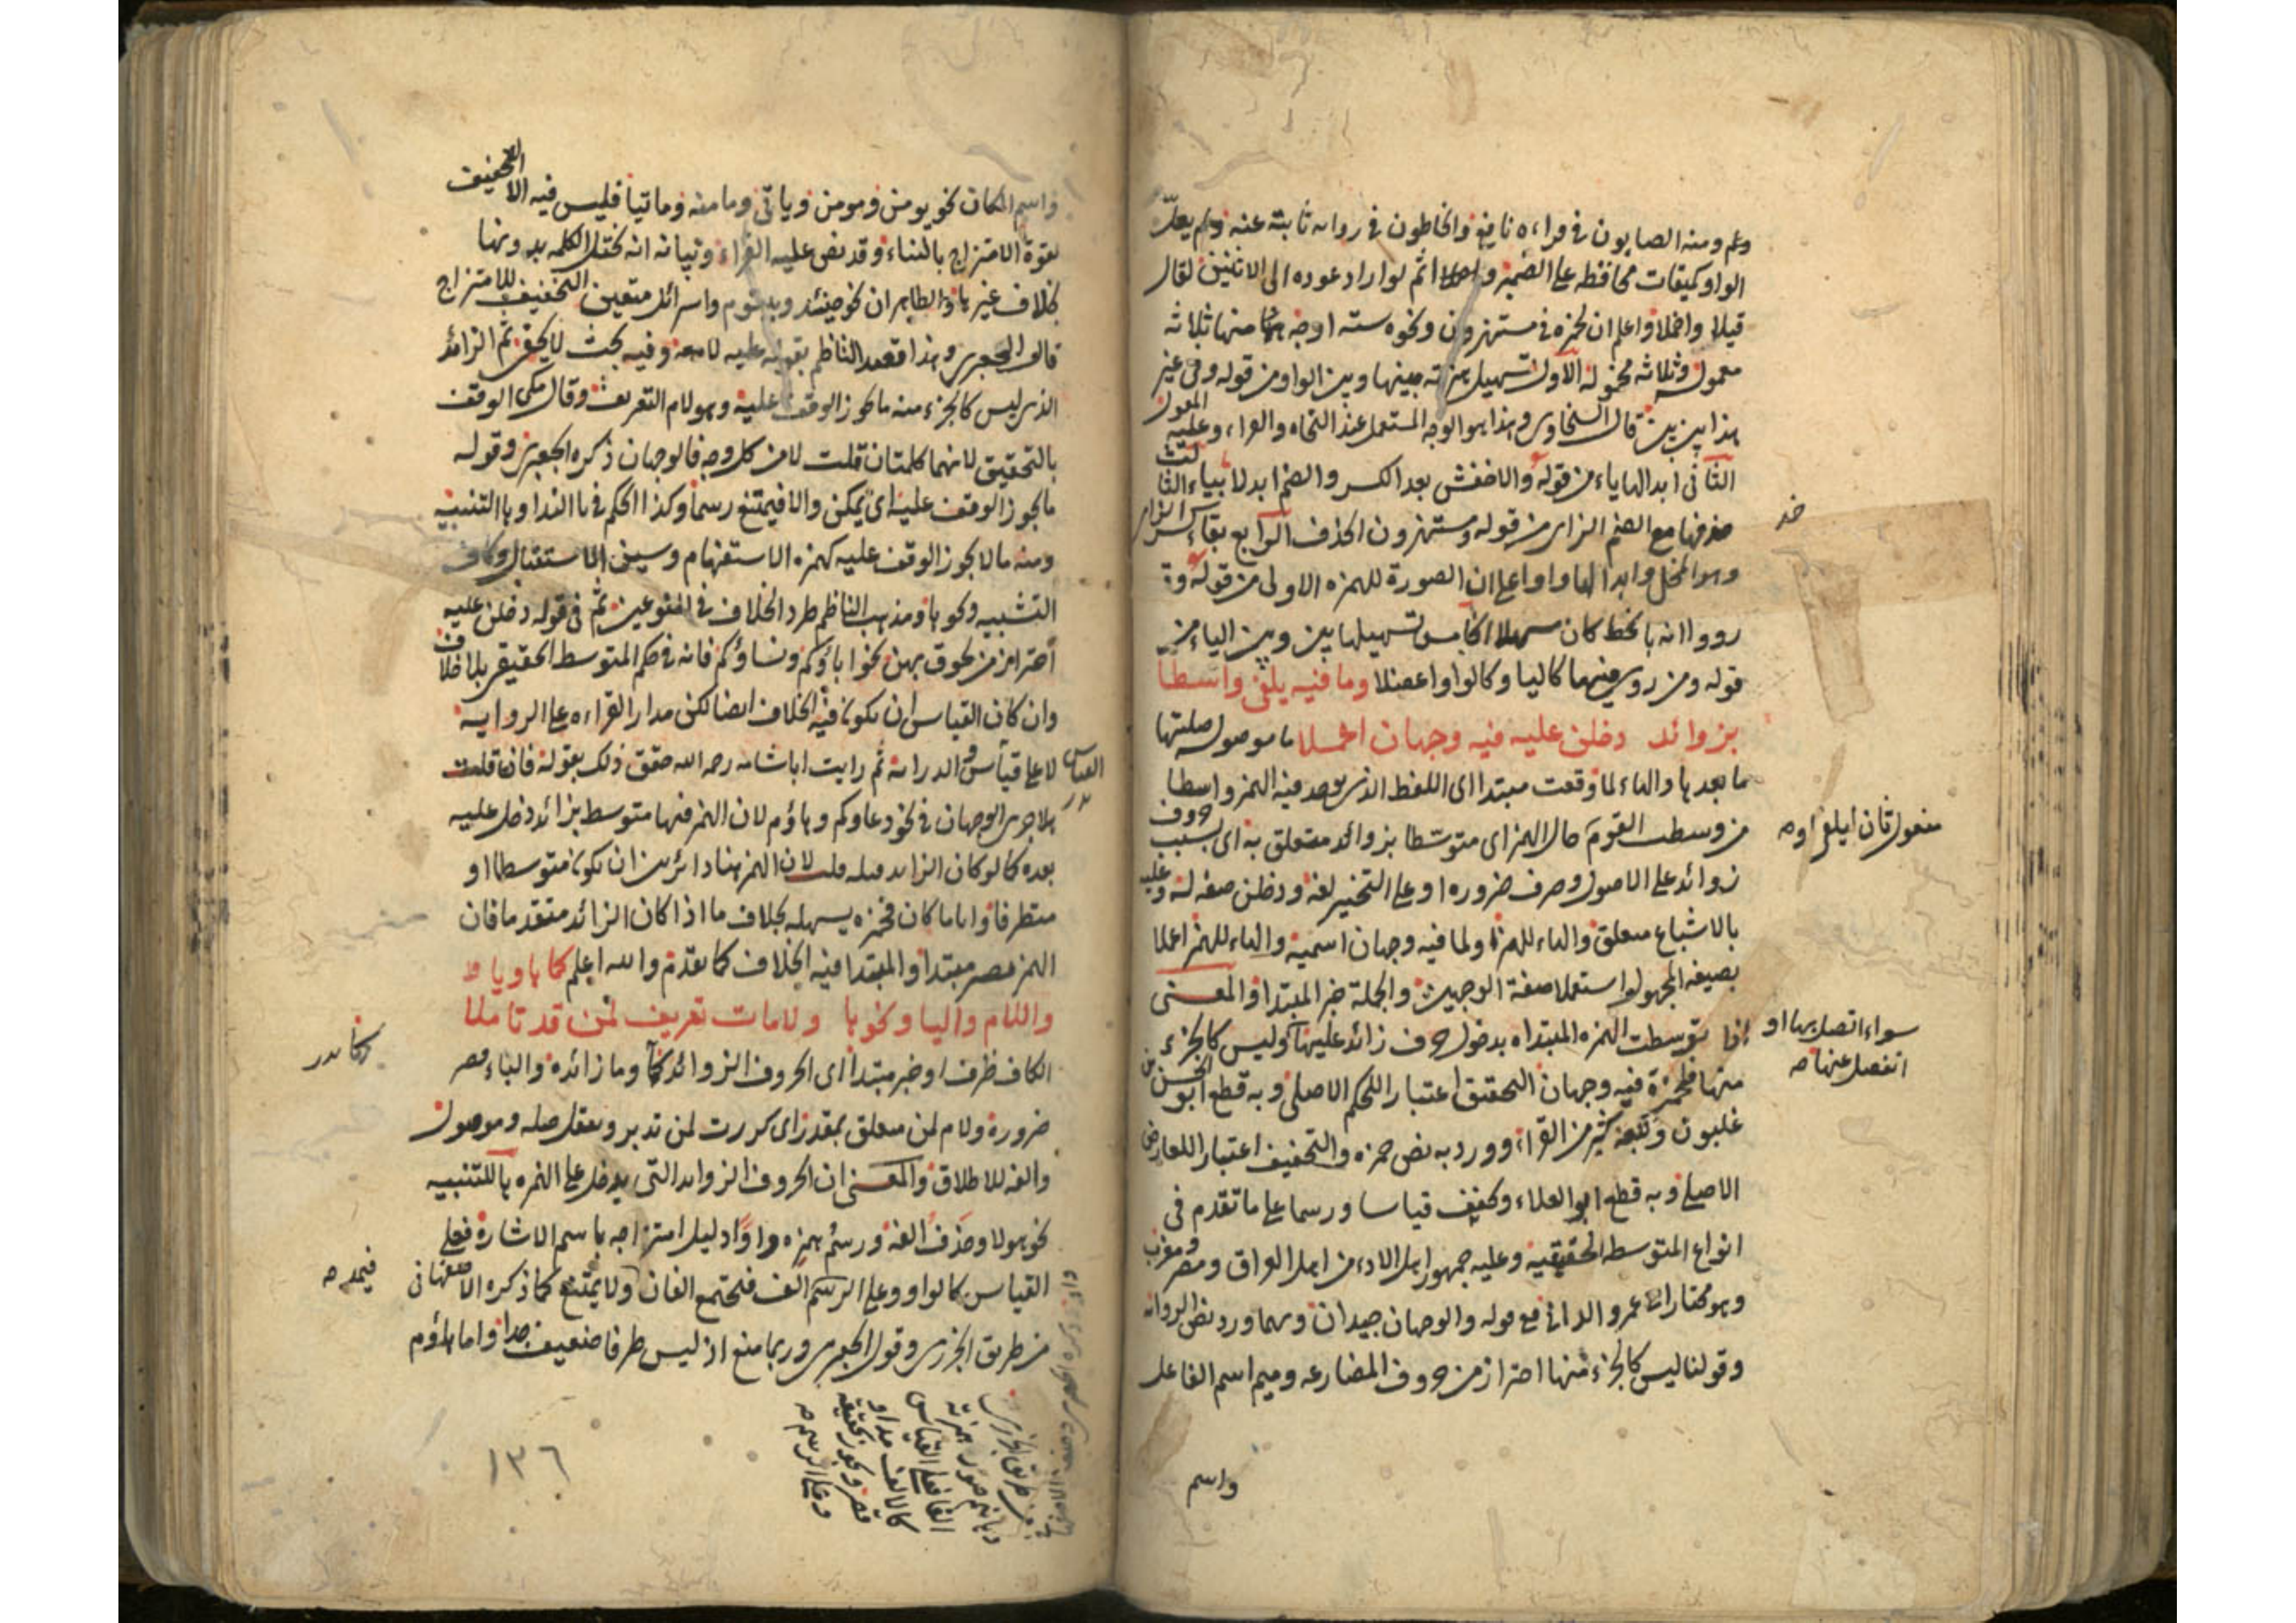 وعم ومنه الصابون في قراءة نافع والخاطون في رواية ثابتة عنه ولم يعل
الواو كميقات محافظة على الضمير واخملا ثم لو اراد عوده الى الاثنين لقال
قيلا واخملا واعلم ان لحمزة في مستهزون ونحوه ستة اوجه منها ثلاثة
معمولة وثلاثة مخمولة الاول تسهيل همزته بينها وبين الواو من قوله وفي غير
هذا بين بين قال السخاوي وهذا هو الوجه المستعمل عند النحاة والقراء وعليه المعول
الثاني ابدالها ياء من قوله والاخفش بعد الكسر والضم ابدلا بياء الثالث
حذفها مع الضم الزاي من قوله ومستهزون الحذف الرابع بقاء كسر الزاي
وهو المخمل وابدالها واوا على ان الصورة للهمزة الاولى من قوله وقد
رووا انه بالخط كان مسهلا الخامس تسهيلها بين وبين الياء من
قوله ومن روي فيهما كاليا وكالواو اعضلا وما فيه يلفى واسطا
بزوائد دخلن عليه فيه وجهان اعملا ما موصول صلتها
ما بعدها والهاء لما وقعت مبتدا اي اللفظ الذي يوجد فيه الهمز واسطا
من وسطت القوم حال الهمز اي متوسطا بزوائد متعلق به اي بسبب حروف
زوائد على الاصول وصرف ضرورة او على التخيير لغة ودخلن صفة له وعليه
بالاشباع متعلق والهاء للهمز ولما فيه وجهان اسمية والهاء للهمز اعملا
بصيغة المجهول استعملا صفة الوجهين والجملة خبر المبتدا والمعنى
اذا توسطت الهمزة المبتداه بدخول حروف زائد عليها وليس كالجزء
منها فلحمزة فيه وجهان التحقيق اعتبارا للحكم الاصلي وبه قطع ابو الحسن بن
غلبون وتبعه كثير من القراء وورد به نص حمزة والتخفيف اعتبارا للعارض
الاصلي وبه قطع ابو العلاء وكفف قياسا ورسما على ما تقدم في
انواع المتوسطة الحقيقية وعليه جمهور اهل الاداء من اهل العراق ومصر ومغرب
وهو مختار ابي عمرو الداني مع قوله والوجهان جيدان وبهما ورد نص الرواية
وقولنا ليس كالجزء منها احتراز من حروف المضارعة وميم اسم الفاعل
مفعول ثان ليلفى اوه
سواء اتصل بها او
انفصل عنها صه
واسم
واسم المكان نحو يومن ومومن وياتي ومامنه وماتيا فليس فيه الا التخفيف
لقوة الامتزاج بالبناء وقد نص عليه القراء وبيانه انه تختل الكلمة بدونها
بخلاف غيرها والظاهر ان نحو حينئذ ويبنؤم واسرائل متعين التخفيف للامتزاج
قال الجعبري وهذا قصد الناظم بقوله عليه لامعه وفيه بحث لا يخفى ثم الزائد
الذي ليس كالجزء منه ما يجوز الوقف عليه وهو لام التعريف وقال مكي الوقف
بالتحقيق لانهما كلمتان قلت لا من كل وجه فالوجهان ذكره الجعبري وقوله
ما يجوز الوقف عليه اي يمكن والا فيمتنع رسما وكذا الحكم في يا الندا وها التنبيه
ومنه ما لا يجوز الوقف عليه كهمزة الاستفهام وسين الاستقبال وكاف
التشبيه ونحوها ومذهب الناظم طرد الخلاف في النوعين ثم في قوله دخلن عليه
احتراز من لحوق بهن نحو اباؤكم ونساؤكم فانه في حكم المتوسط الحقيقي بلا خلاف
وان كان القياس ان يكون فيه الخلاف ايضا لكن مدار القراءة على الرواية
لا على قياس الدراية ثم رايت اباشامة رحمه الله حقق ذلك بقوله فان قلت
هلا جرى الوجهان في نحو دعاوكم وهاؤم لان الهمز فيها متوسط بزائد دخل عليه
بعده كما لو كان الزايد قبله قلت لان الهمز هنا دائر بين ان يكون متوسطا او
متطرفا واياما كان فحمزة يسهله بخلاف ما اذا كان الزائد متقدما فان
الهمز يصير مبتدا والمبتدا فيه الخلاف كما تقدم والله اعلم كما ها ويا و
واللام والبا ونحوها ولامات تعريف لمن قد تاملا
الكاف ظرف او خبر مبتدا اي الحروف الزوائد كها وما زائدة والباء قصر
ضرورة ولام لمن متعلق بمقدر اي كررت لمن تدبر وتعقل صلة وموصول
والفه للاطلاق والمعنى ان الحروف الزوايد التي يدخل على الهمزة ها للتنبيه
نحو هولا وحذف الفه ورسم همزه واوا دليل امتزاجه باسم الاشارة فعلى
القياس كالواو وعلى الرسم الف فتجتمع الفان ولا يمتنع كما ذكره الاصفهاني
من طريق الجزري وقول الجعبري وربما منع اذ ليس طرفا ضعيف جدا واما هاؤم
فيمد صه
من طريق الجزري
١٣٦